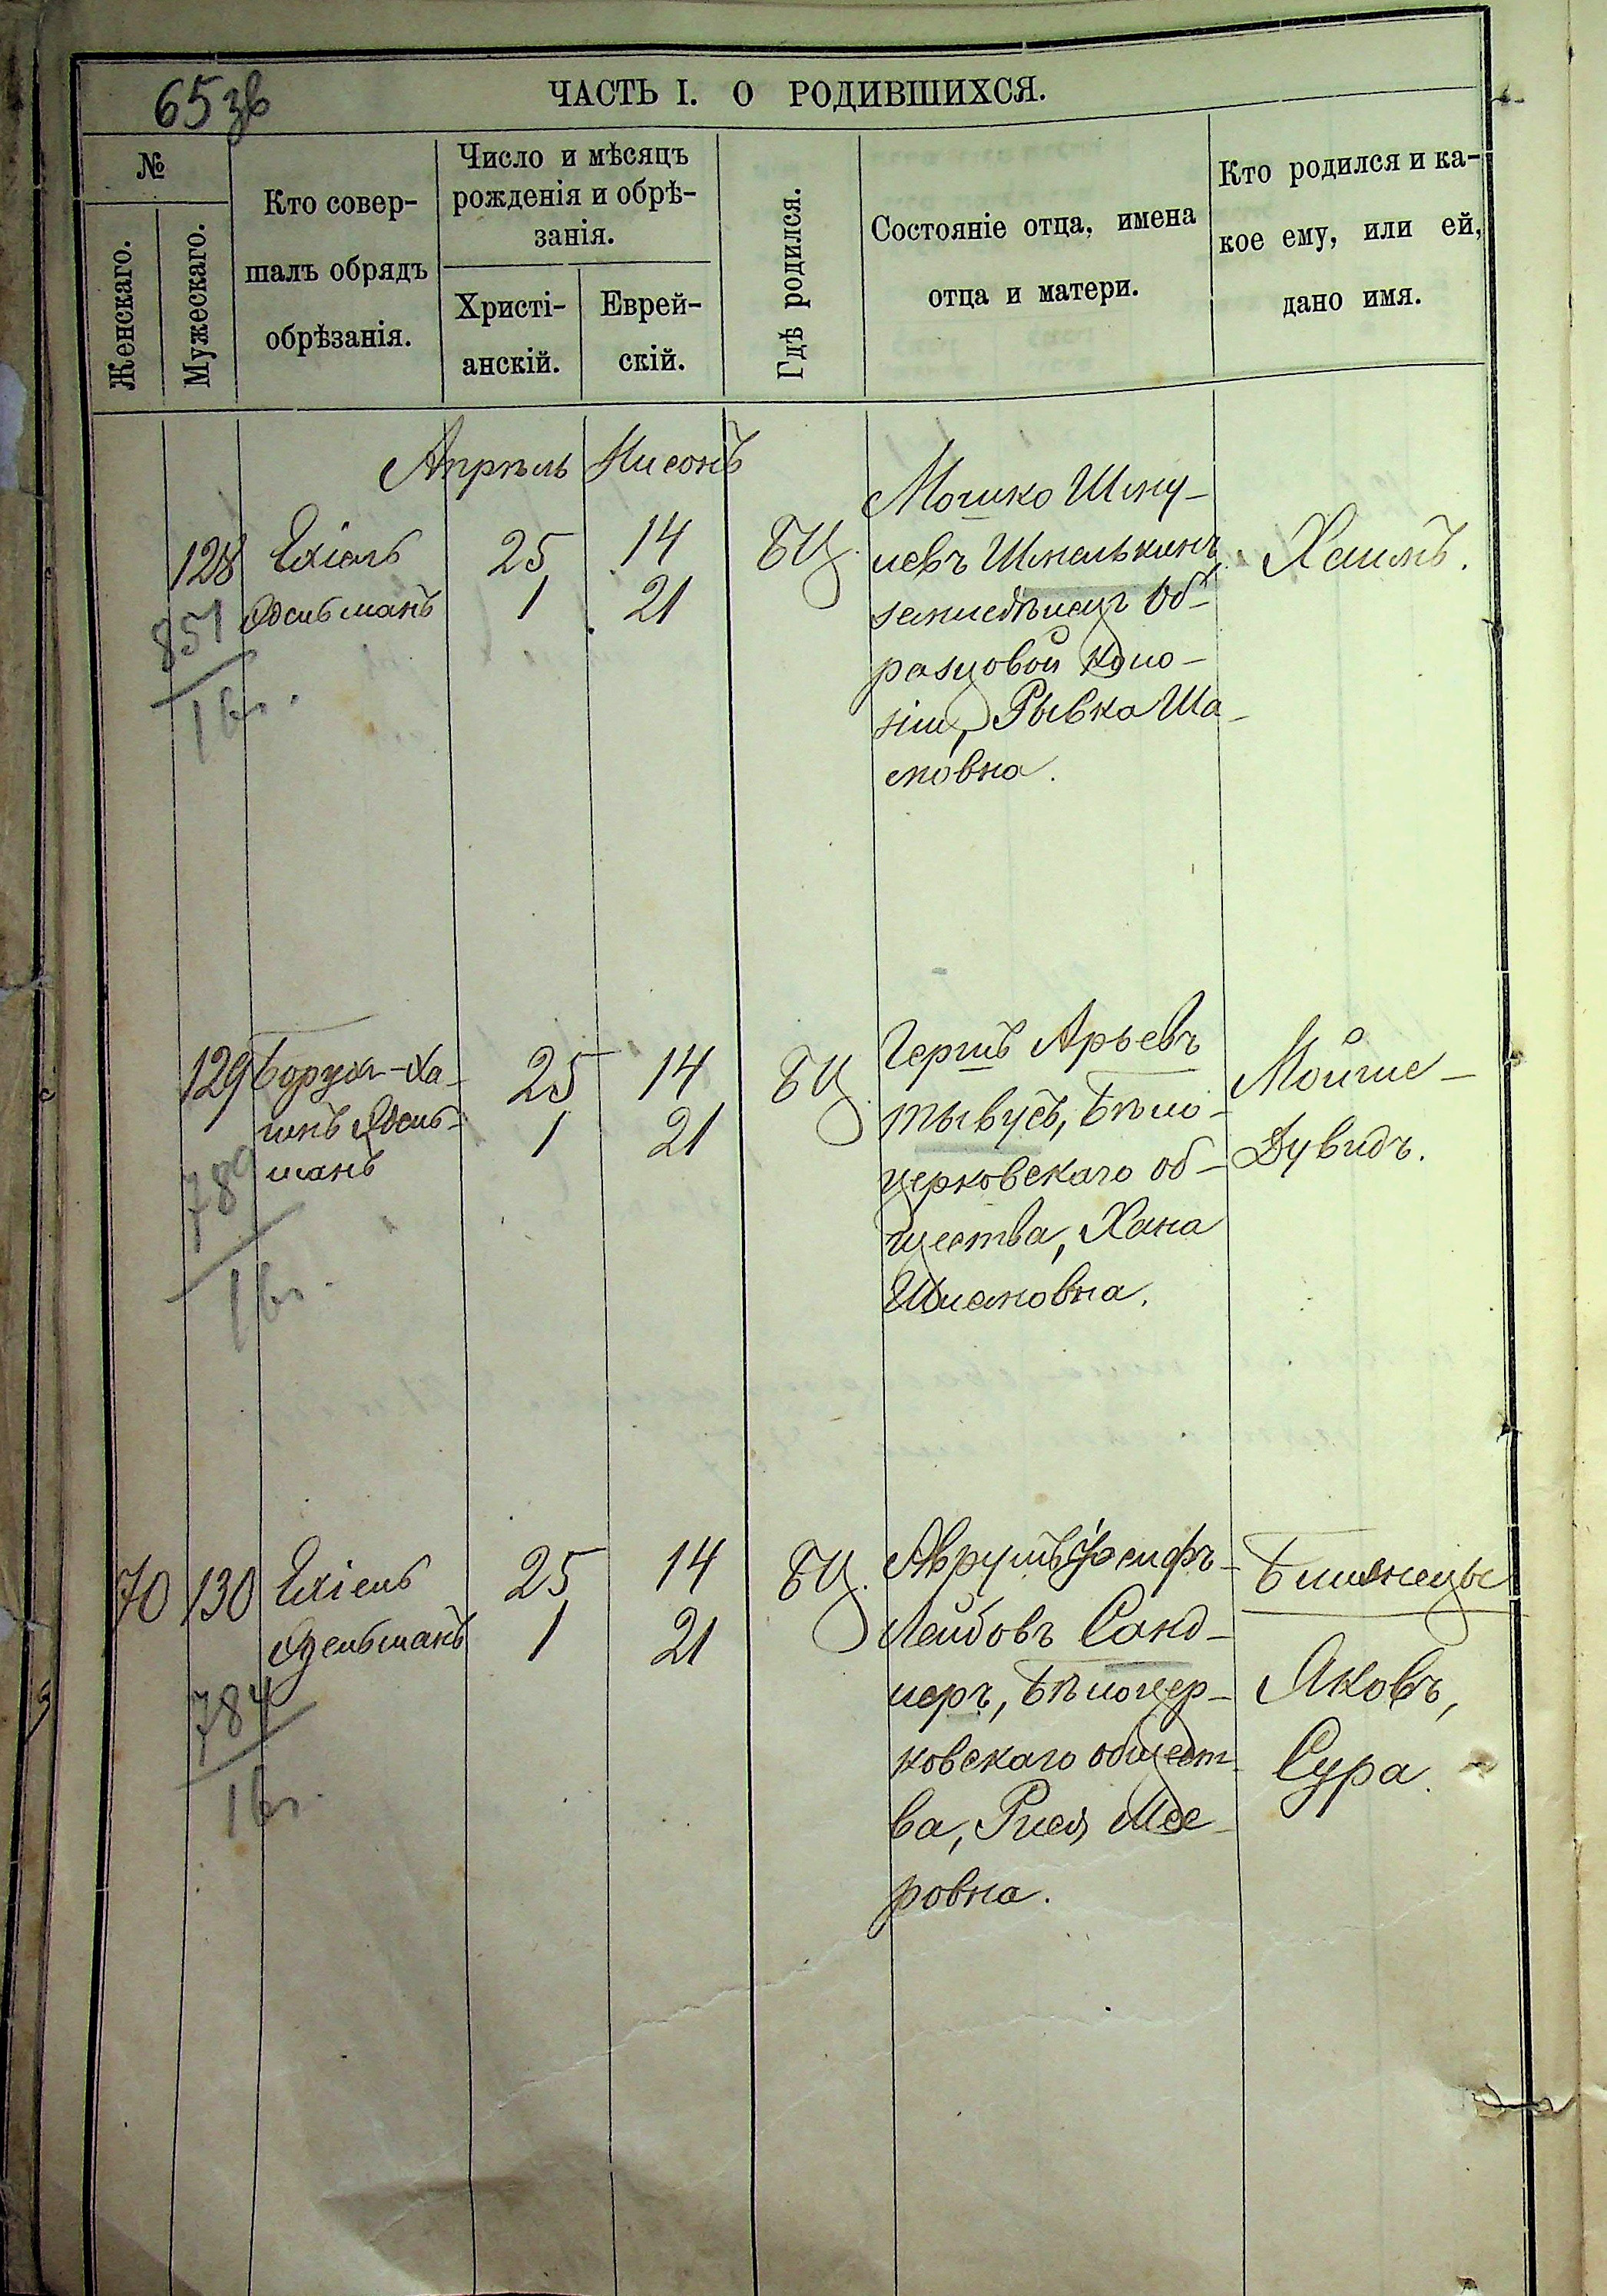 65 зв
ЧАСТЬ I. О РОДИВШИХСЯ.
№
Женскаго.
Мужескаго.
Кто совер-
шалъ обрядъ
обрѣзанія.
Число и мѣсяцъ
рожденія и обрѣ-
занія.
Христі-
анскій.
Еврей-
скій.
Гдѣ родился.
Состояніе отца, имена
отца и матери.
Кто родился и ка-
кое ему, или ей,
дано имя.
Апрѣль Нисонъ
128
Ехіель
25
1
14
21
БЦ.
Мошко Шму-
левъ Шмелькинъ
земледѣлецъ Об-
разцовой Коло-
ніи, Рывка Ша
мовна.
Хаимъ.
851
129
Борухъ-Ха-
имъ
25
1
14
21
БЦ
Гершъ Арьевъ
Тывусъ, Бѣло-
церковскаго об-
щества, Хана
Шмановна.
Мойше-
Дувидъ.
789
70 130
Ехіель
25
1
14
21
БЦ.
Аврумъ Іосифъ-
Лейбовъ Санд-
леръ, Бѣлоцер-
ковскаго общест-
ва, Рися Мее-
ровна.
Близнецы
Яковъ,
Сура.
784